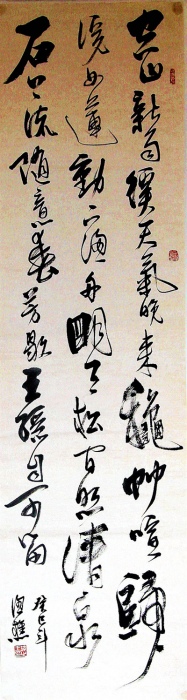 空山新雨後天氣晚來龝竹喧歸
浣女蓮動下漁舟明月松間照清泉
石上流隨意春芳歇王孫自可留
癸巳年